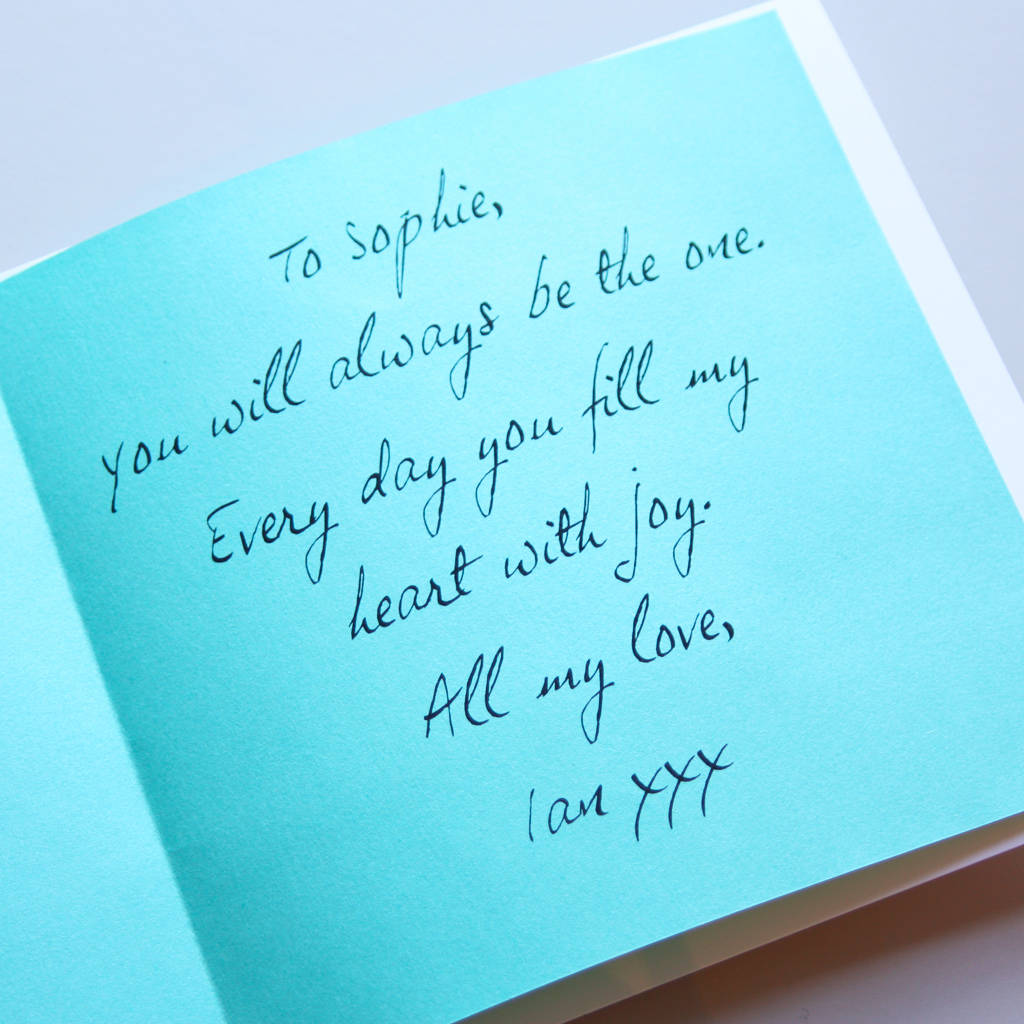 To Sophie,
You will always be the one.
Every day you fill my
heart with joy.
All my love,
Ian xxx